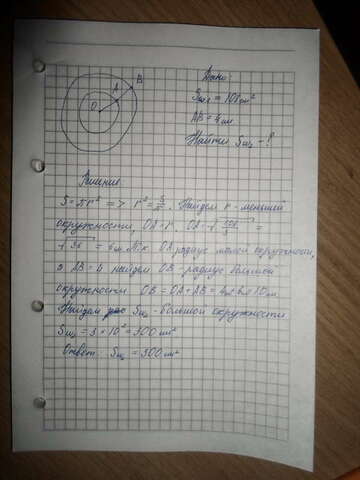 B
A
O
Дано:
Sм.ц = 108 см²
AB = 4 см
Найти Sш₂ - ?
Решение
S = πr² => r² = S/π. Найдем r - меньшей
окружности, OA = r. OA = √108/3 =
√36 = 6 см. Т.к. OA радиус малой окружности,
а AB = 4 найдем OB - радиус большой
окружности. OB = OA + AB = 6см 4см 10см
Найдем Sш₂ - большой окружности
Sш₂ = 3 × 10² = 300 см²
Ответ: Sш₂ = 300 см²